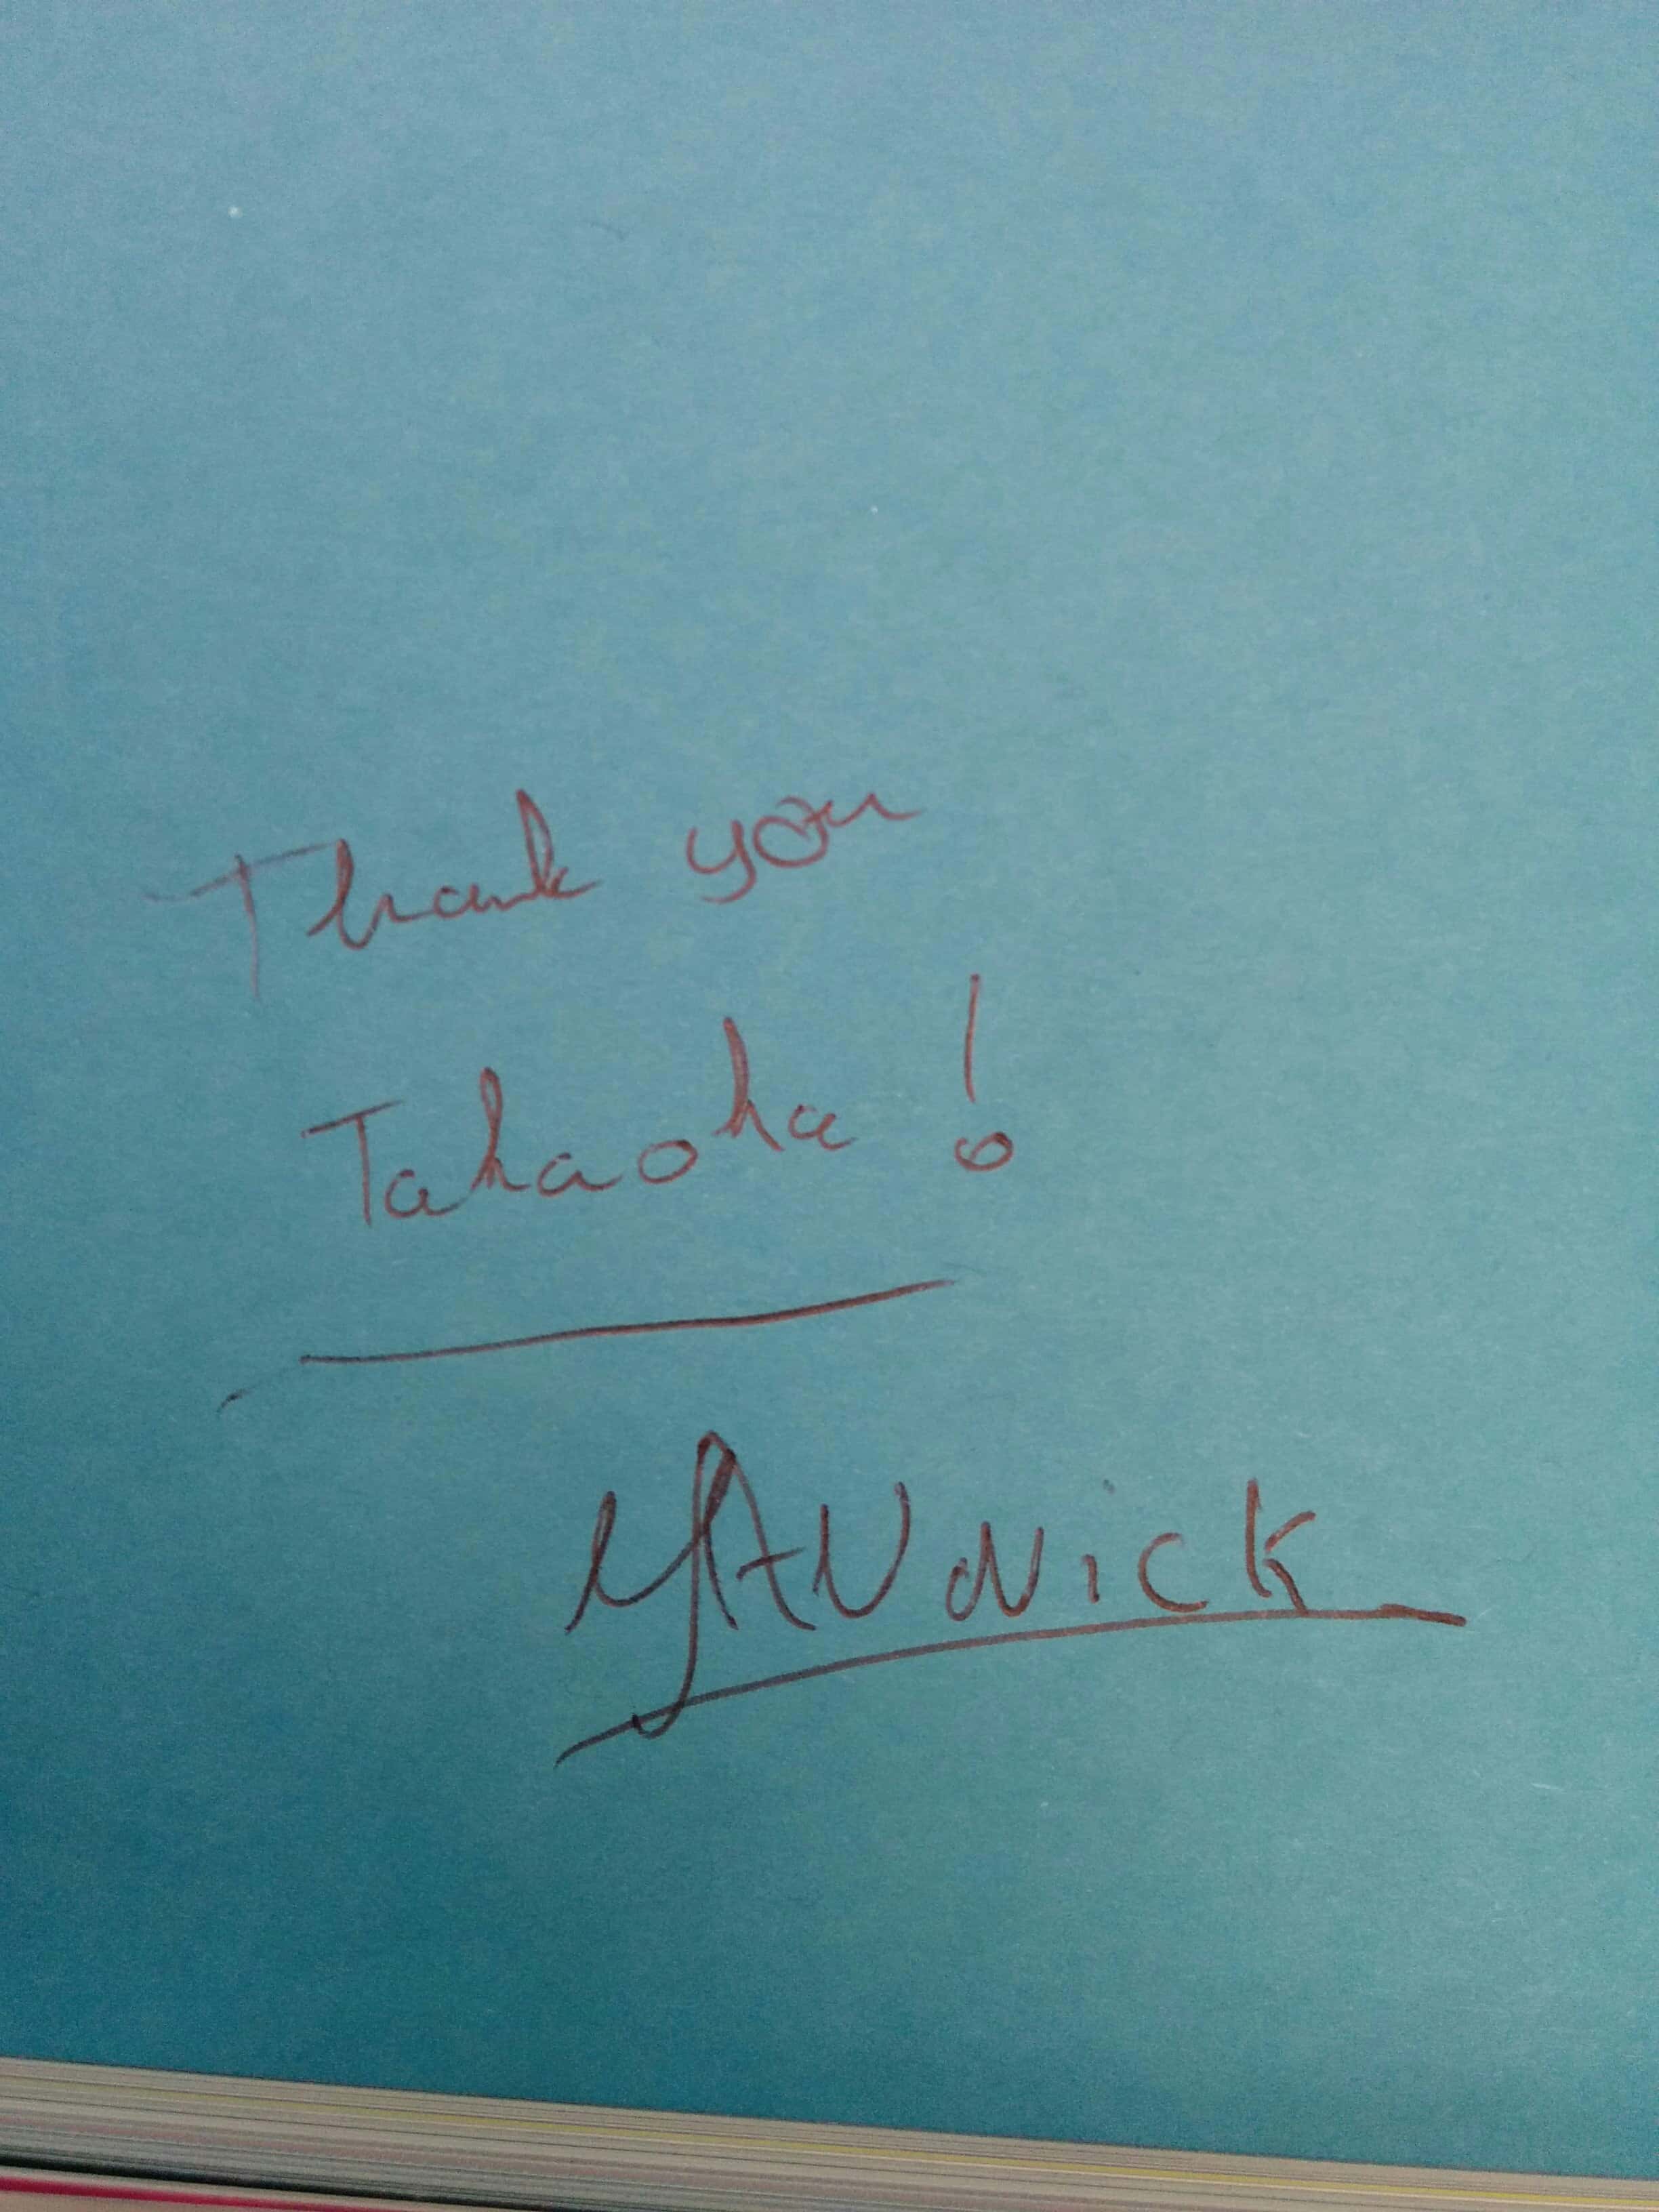 Thank you
Takaoka !
YANNICK